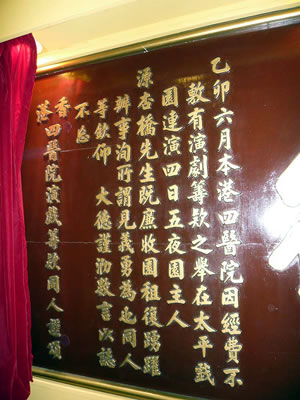 乙卯六月本港四醫院因經費不
敷有演劇籌欵之舉在太平戲
園連演四日五夜園主人
源杏橋先生既廉收園租復踴躍
辦事洵所謂見義勇為也同人
等欽仰 大德謹泐數言以誌
不忘
香
港四醫院演戲籌欵同人謹頌